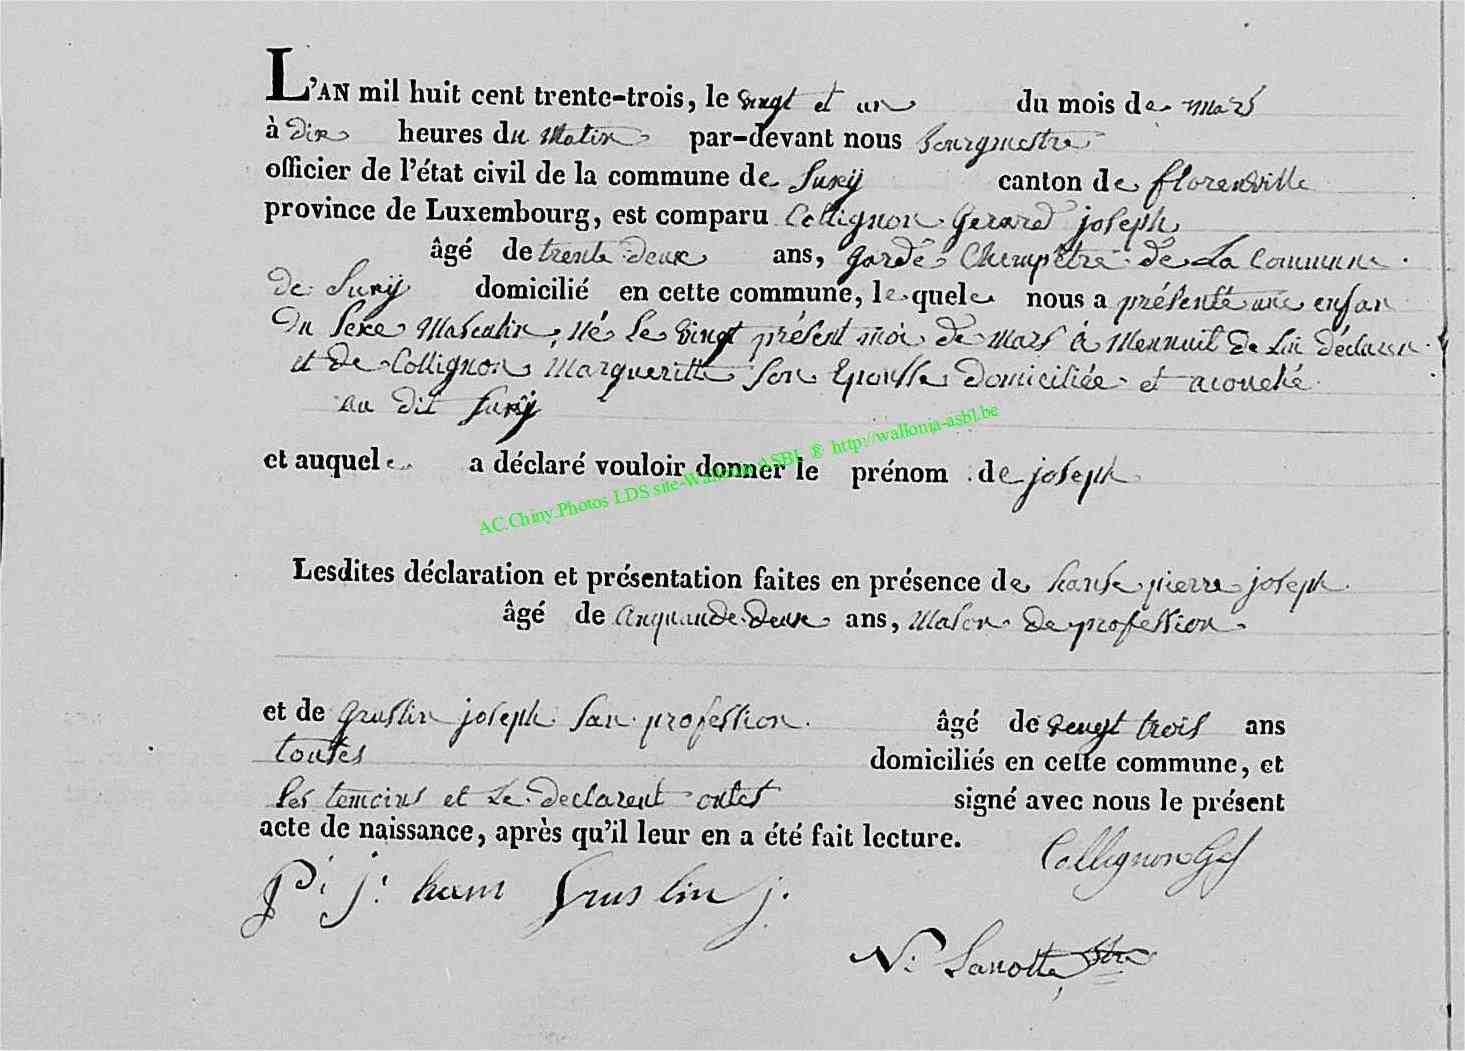 L'AN mil huit cent trente-trois, le vingt et un du mois de mars
à dix heures du Matin par-devant nous bourgmestre
officier de l'état civil de la commune de Suxÿ canton de florenville
province de Luxembourg, est comparu Collignon Gerard joseph
âgé de trente deux ans, garde Champêtre de La Commune
de Suxÿ domicilié en cette commune, lequel nous a présenté une enfan
du sexe Masculin, né le vingt présent moi de Mars à Mennuit de lui déclaran
et de Collignon Margueritte son Epousse domiciliée et acouché
au dit Suxÿ
et auquel a déclaré vouloir donner le prénom de joseph
AC.Chiny.Photos LDS site-Wallonia ASBL ® http://wallonia-asbl.be
Lesdites déclaration et présentation faites en présence de pierre joseph
âgé de cinquande deux ans, Mason de profession
et de Gruslin joseph san profession âgé de vengt trois ans
toutes domiciliés en cette commune, et
les temoins et le declarent ontet signé avec nous le présent
acte de naissance, après qu'il leur en a été fait lecture.
Collignon Gj
P. j. hans Gruslin j.
N. Lanotte